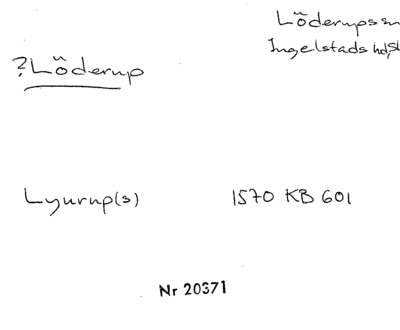 Löderups sn
Ingelstads hd, Sk
?Löderup
Lyurup(s) 1570 KB 601
Nr 20371